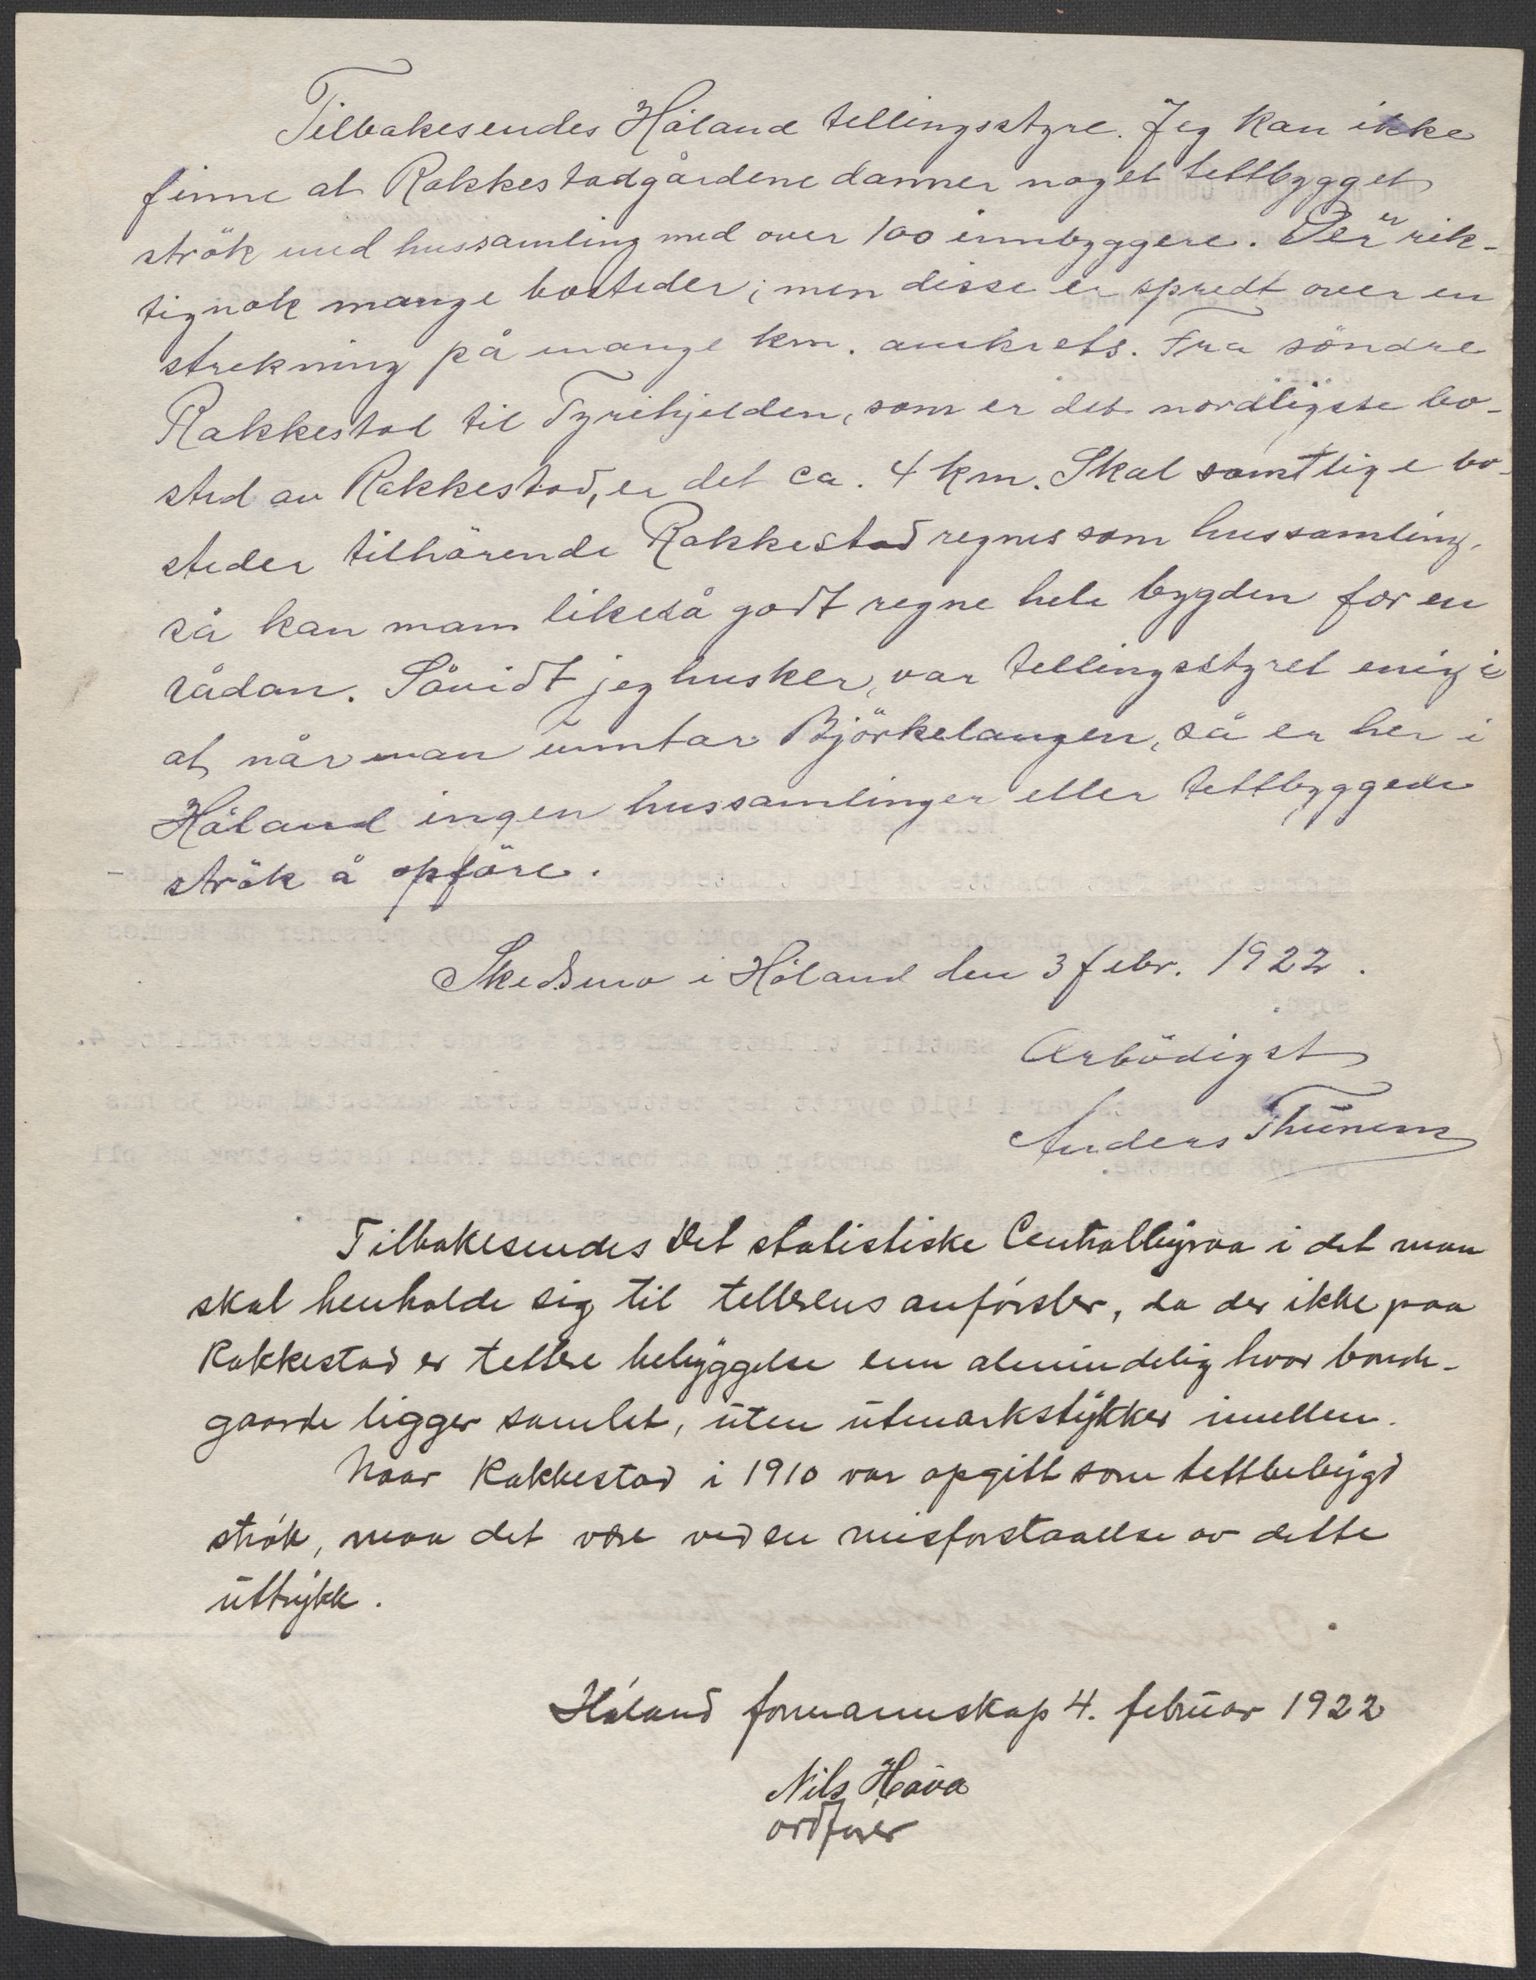 Tilbakesendes Höland tellingsstyre. Jeg kan ikke
finne at Rakkestadgårdene danner noget tettbygget
strök med hussamling med over 100 innbyggere. Der er rik-
tignok mange bosteder; men disse er spredt over en
strekning på mange km. omkrets. Fra söndre
Rakkestad til Tyrihjelden, som er det nordligste bo-
sted av Rakkestad, er det ca. 4 km. Skal samtlige bo-
steder tilhörende Rakkestad regnes som hussamling,
så kan man likeså godt regne hele bygden for en
sådan. Såvidt jeg husker, var tellingsstyret enig i
at når man unntar Björkelangen, så er her i
Höland ingen hussamlinger eller tettbyggede
strök å opföre.
Skedsmo i Höland den 3 febr. 1922.
Ærbödigst
Anders
Tilbakesendes Det statistiske Centralbyraa i det man
skal henholde sig til tellerens anförsler, da der ikke paa
Rakkestad er tettere bebyggelse enn almindelig hvor bonde-
gaarde ligger samlet, uten utmarkstykker imellem.
Naar Rakkestad i 1910 var opgitt som tettbebygd
strök, maa det være ved en misforstaaelse av dette
uttrykk.
Höland formannskap 4. februar 1922
Nils
ordförer